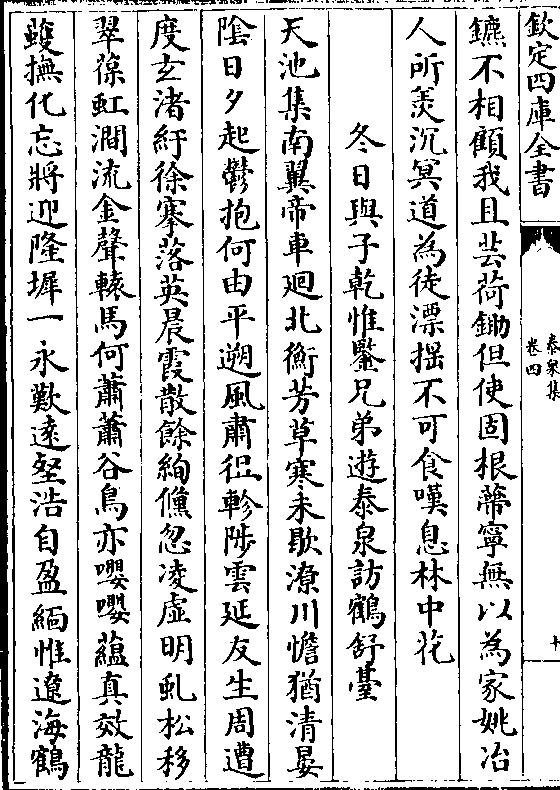 欽定四庫全書
泰泉集
卷四
鑣不相顧我且芸荷鋤但使固根蔕寧無以為家姚冶
人所羡沉冥道為徒漂揺不可食嘆息林中花
冬日與子乾惟鑒兄弟遊泰泉訪鶴舒臺
天池集南翼帝車廻北衡芳草寒未歇潦川憺猶清晏
隂日夕起鬱抱何由平遡風肅徂軫陟雲延友生周遭
度玄渚紆徐搴落英晨霞散餘絢儵忽凌虚明虬松移
翠葆虹澗流金聲轅馬何蕭蕭谷鳥亦嚶嚶藴真效龍
蠖撫化忘將迎隆墀一永歎遠壑浩自盈緬惟遼海鶴